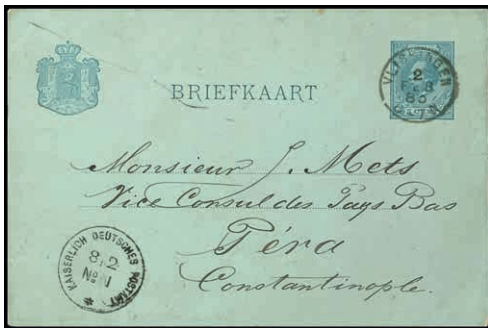 BRIEFKAART
VLISSINGEN
2
FEB
83
Monsieur J. Mets
Vice Consul des Pays Bas
Péra
Constantinople.
KAISERLICH DEUTSCHES POSTAMT
8 2
No 1